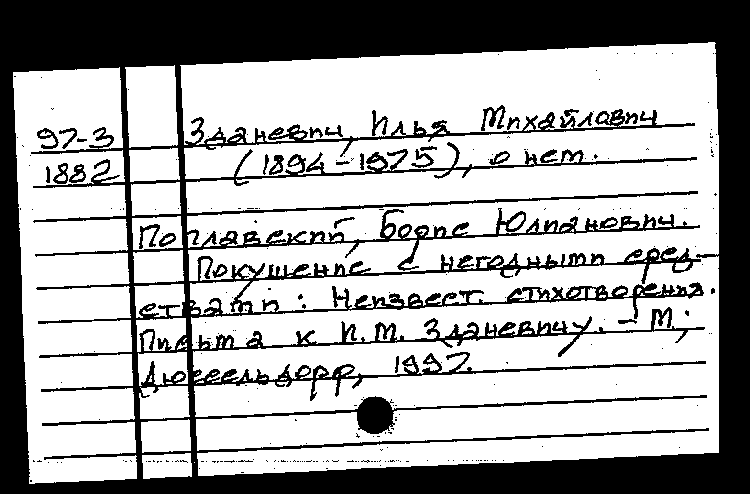 97-3 Зданевич, Илья Михайлович
1882 (1894-1975), о нем.
Поплавский, Борис Юлианович.
Покушение с негодными сред-
ствами : Неизвест. стихотворения.
Письма к И.М. Зданевичу. - М;
Дюссельдорф, 1997.